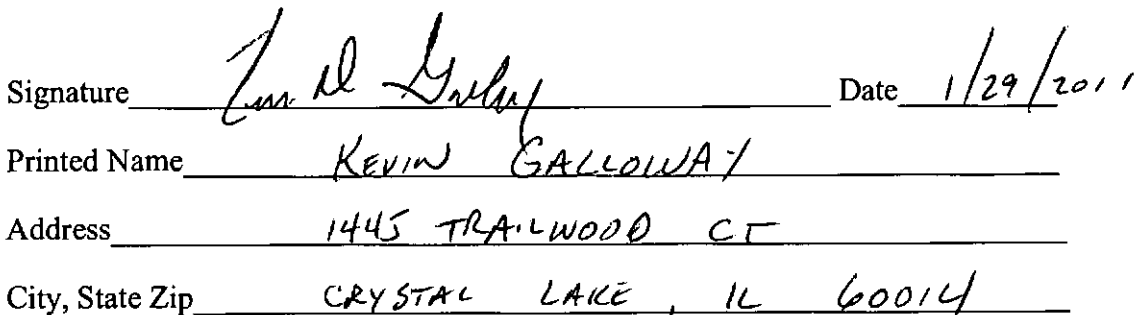 Signature Date 1/29/2011
Printed Name KEVIN GALLOWAY
Address 1445 TRAILWOOD CT
City, State Zip CRYSTAL LAKE, IL 60014